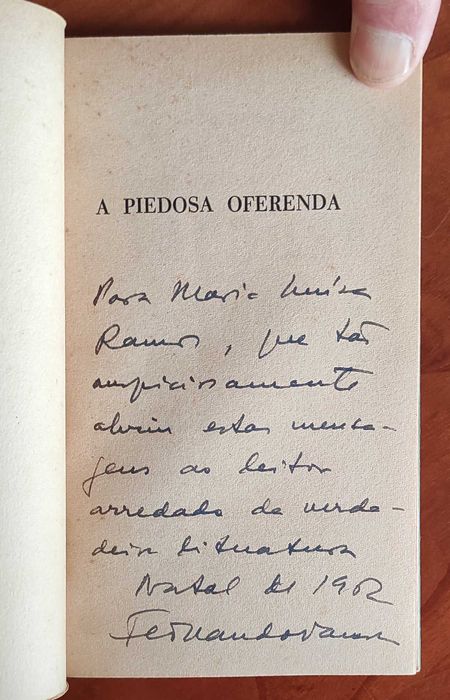 A PIEDOSA OFERENDA
Para Maria Luísa
Ramos, que tão
auspiciosamente
abriu estas mensa-
gens ao leitor
arredado da verda-
deira literatura
Natal de 1962
Fernando